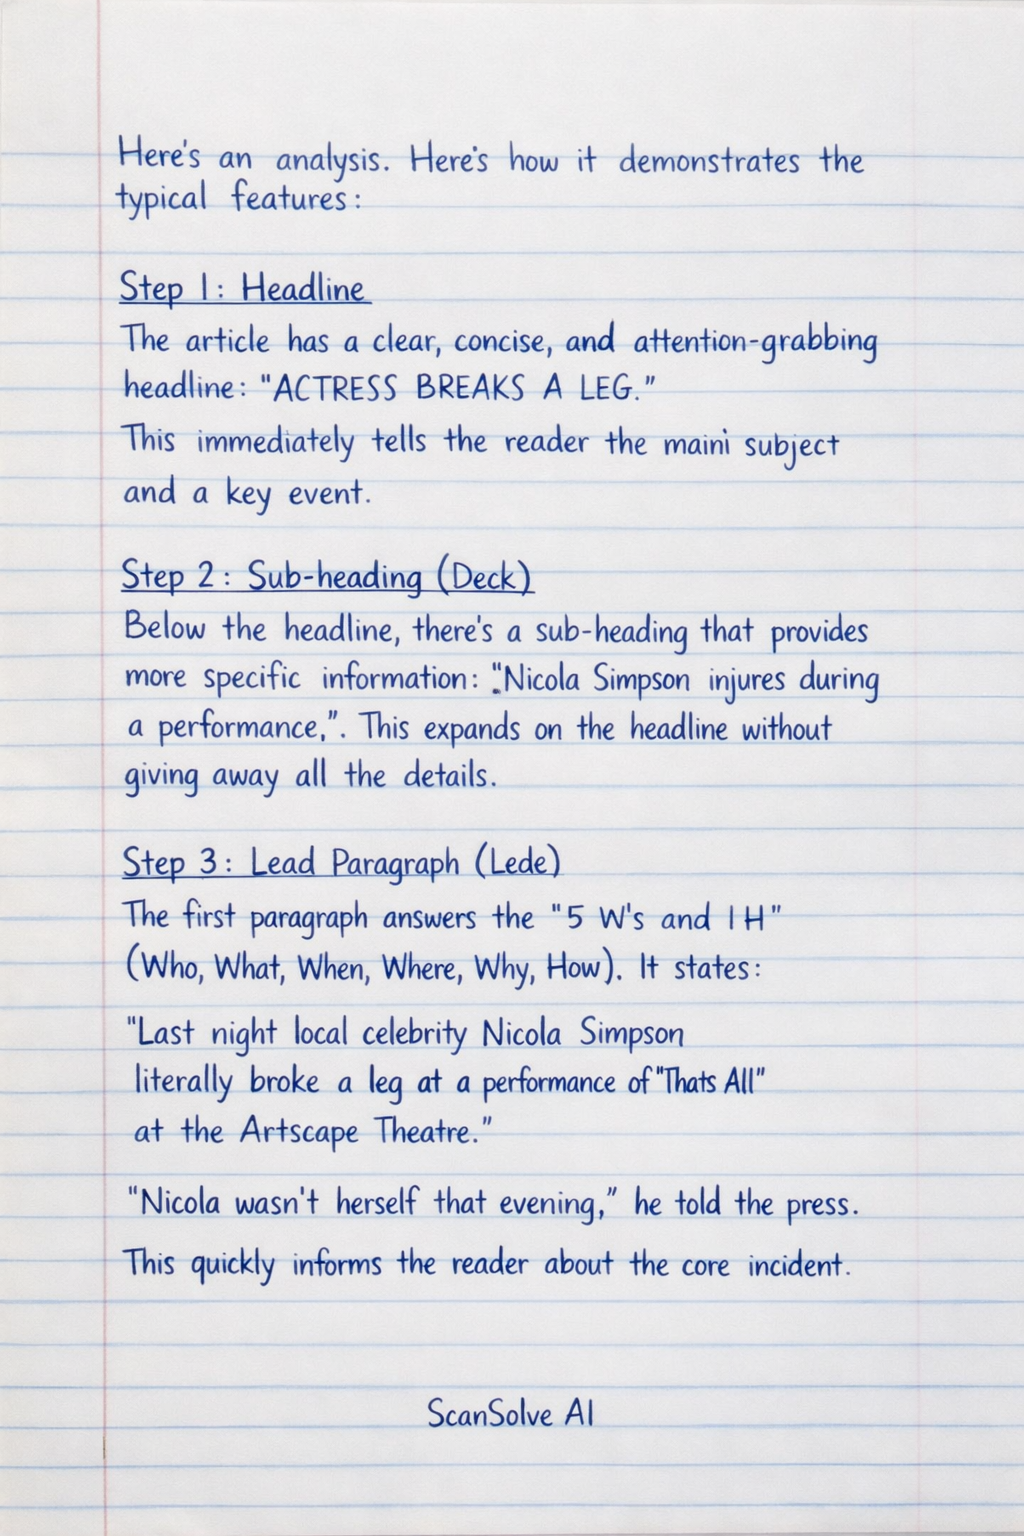 Here's an analysis. Here's how it demonstrates the
typical features:
Step 1: Headline
The article has a clear, concise, and attention-grabbing
headline: "ACTRESS BREAKS A LEG."
This immediately tells the reader the maini subject
and a key event.
Step 2: Sub-heading (Deck)
Below the headline, there's a sub-heading that provides
more specific information: "Nicola Simpson injures during
a performance,". This expands on the headline without
giving away all the details.
Step 3: Lead Paragraph (Lede)
The first paragraph answers the "5 W's and 1 H"
(Who, What, When, Where, Why, How). It states:
"Last night local celebrity Nicola Simpson
literally broke a leg at a performance of "Thats All"
at the Artscape Theatre."
"Nicola wasn't herself that evening," he told the press.
This quickly informs the reader about the core incident.
ScanSolve AI